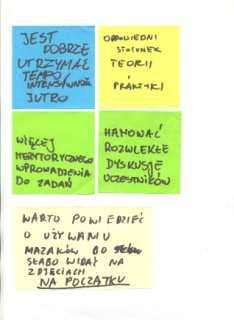 JEST
DOBRZE
UTRZYMAĆ
TEMPO/
INTENSYWNOŚĆ
JUTRO
ODPOWIEDNI
STOSUNEK
TEORII
I
PRAKTYKI
WIĘCEJ
MERYTORYCZNEGO
WPROWADZENIA
DO ZADAŃ
HAMOWAĆ
ROZWLEKŁE
DYSKUSJE
UCZESTNIKÓW
WARTO POWIEDZIEĆ
O UŻYWANIU
MAZAKÓW BO
SŁABO WIDAĆ NA
ZDJĘCIACH
NA POCZĄTKU